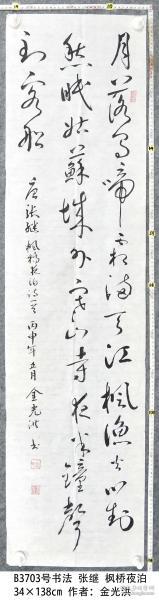 月落乌啼霜满天江枫渔火对
愁眠姑蘇城外寒山寺夜半鐘聲
到客船
唐张继枫桥夜泊诗一首丙申年五月金光洪书
B3703号书法 张继 枫桥夜泊
34×138cm 作者：金光洪